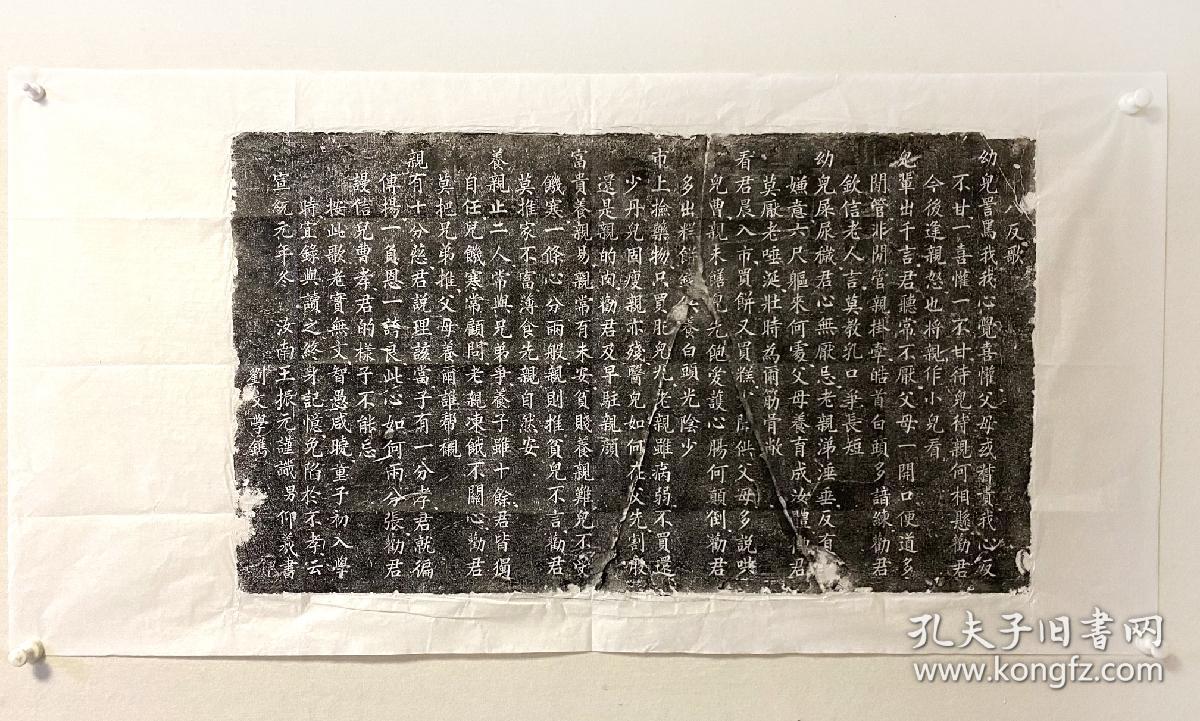 八反歌
幼兒詈罵我我心覺喜懽父母或嗔責我心反
不甘一喜懽一不甘待兒待親何相懸勸君
今後逢親怒也將親作小兒看
兒輩出千言君聽常不厭父母一開口便道多
閒管非閒管親掛牽皓首白頭多諳練勸君
欽信老人言莫教乳口爭長短
幼兒屎尿穢君心無厭忌老親涕涶垂反有
嫌意六尺軀來何處父母養育成汝體勸君
莫厭老唾涎壯時為爾筋骨敝
看君晨入市買餅又買糕 供父母多說哄
兒曹親未饍兒先飽愛護心腸何顛倒勸君
多出糕餅 養白頭光陰少
市上撿藥物只買肥兒丸老親雖病弱不買還
少丹兒固瘦親亦殘醫兒如何在父先割股
還是親的肉勸君及早駐親顏
富貴養親易親常有未安貧賤養親難兒不受
饑寒一條心分兩般親則推貧兒不言勸君
莫推家不富薄食先親自然安
養親止二人常與兄弟爭養子雖十餘君皆獨
自任兒饑寒常顧問老親凍餓不關心勸君
莫把兄弟推父母養爾誰幫襯
親有十分慈君說理該當子有一分孝君就徧
傳揚一負恩一誇良此心如何兩分張勸君
謾信兒曹孝君的樣子不能忘
按此歌老實無文智愚咸曉童子初入學
時宜錄與讀之終身記憶免陷於不孝云
宣統元年冬 汝南王振元謹識易仰羲書
劉文學鐫
孔夫子旧書网
www.kongfz.com